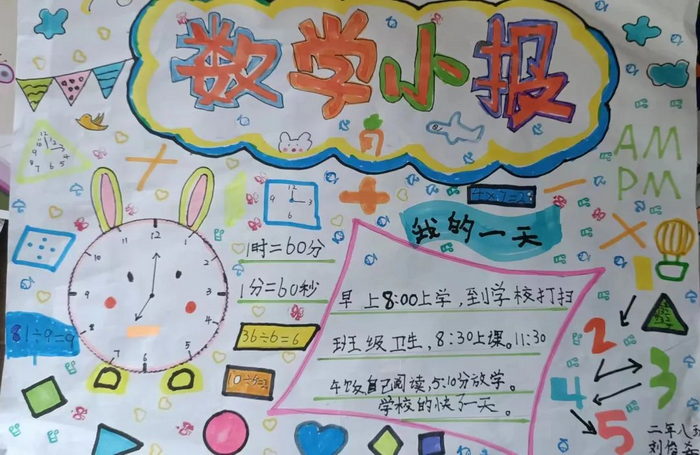 数学小报
AM
PM
12
9 3
6
4×7=2
我的一天
1时=60分
1分=60秒
早上8:00上学,到学校打扫
班级卫生,8:30上课。11:30
午饭自己阅读,5:10分放学。
学校的快了一天。
12
1
2
3
4
5
6
7
8
9
10
11
81÷9=9
36÷6=6
2
4 3
5
二年八班